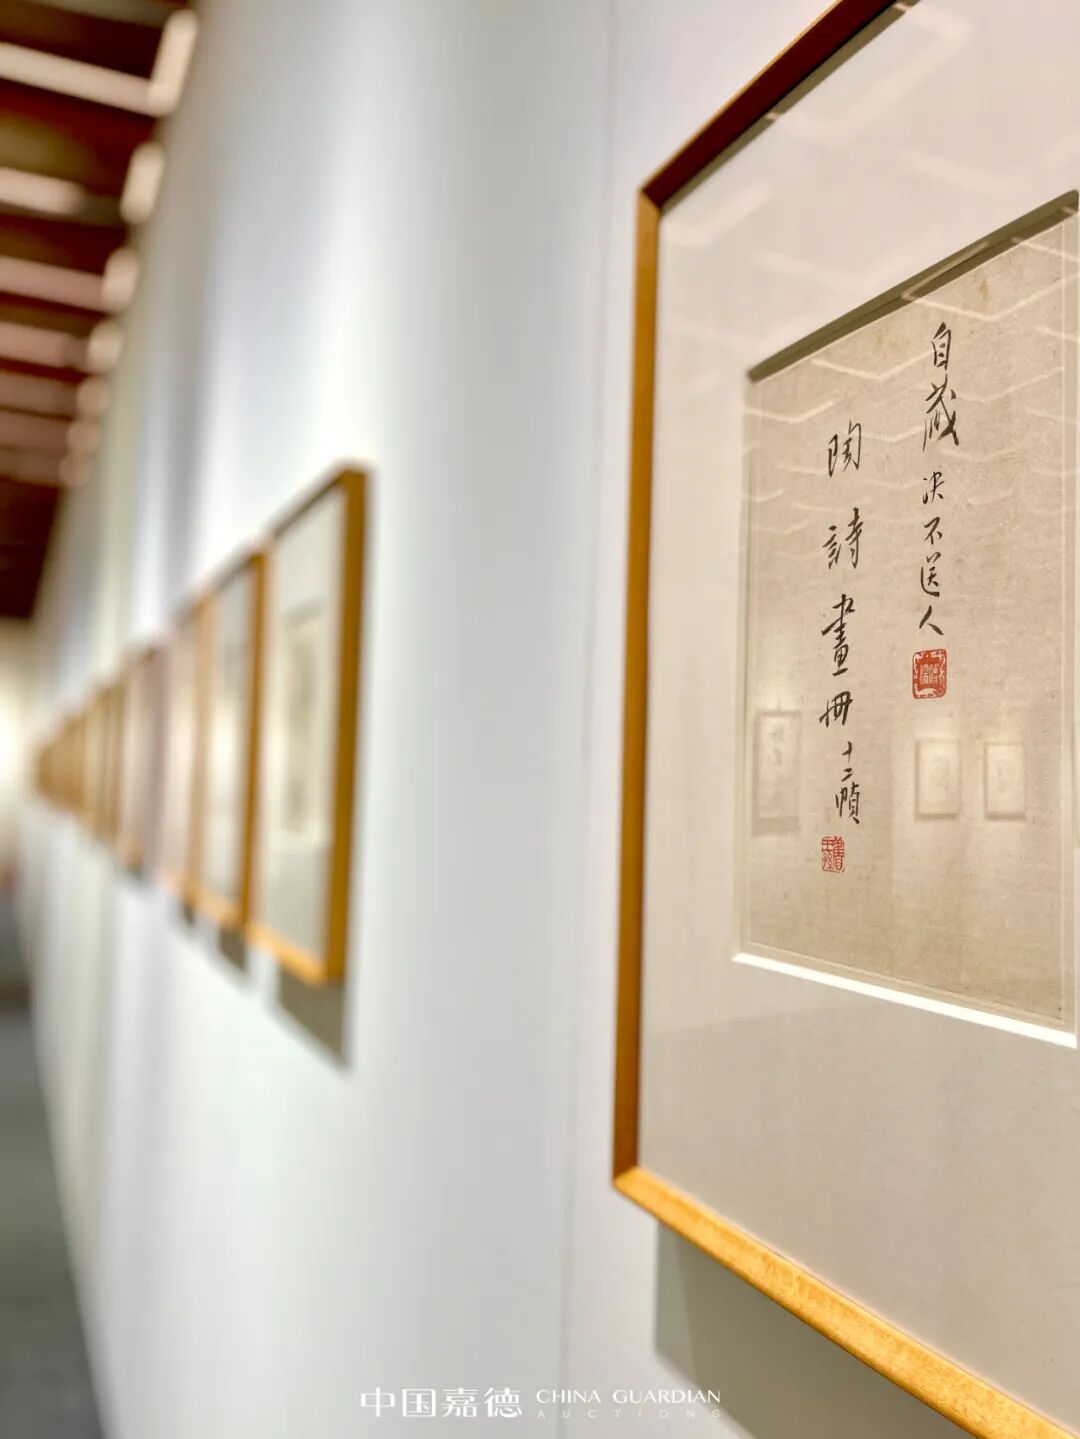 自藏决不送人
陶詩畫册十二幀
中国嘉德 CHINA GUARDIAN
AUCTIONS